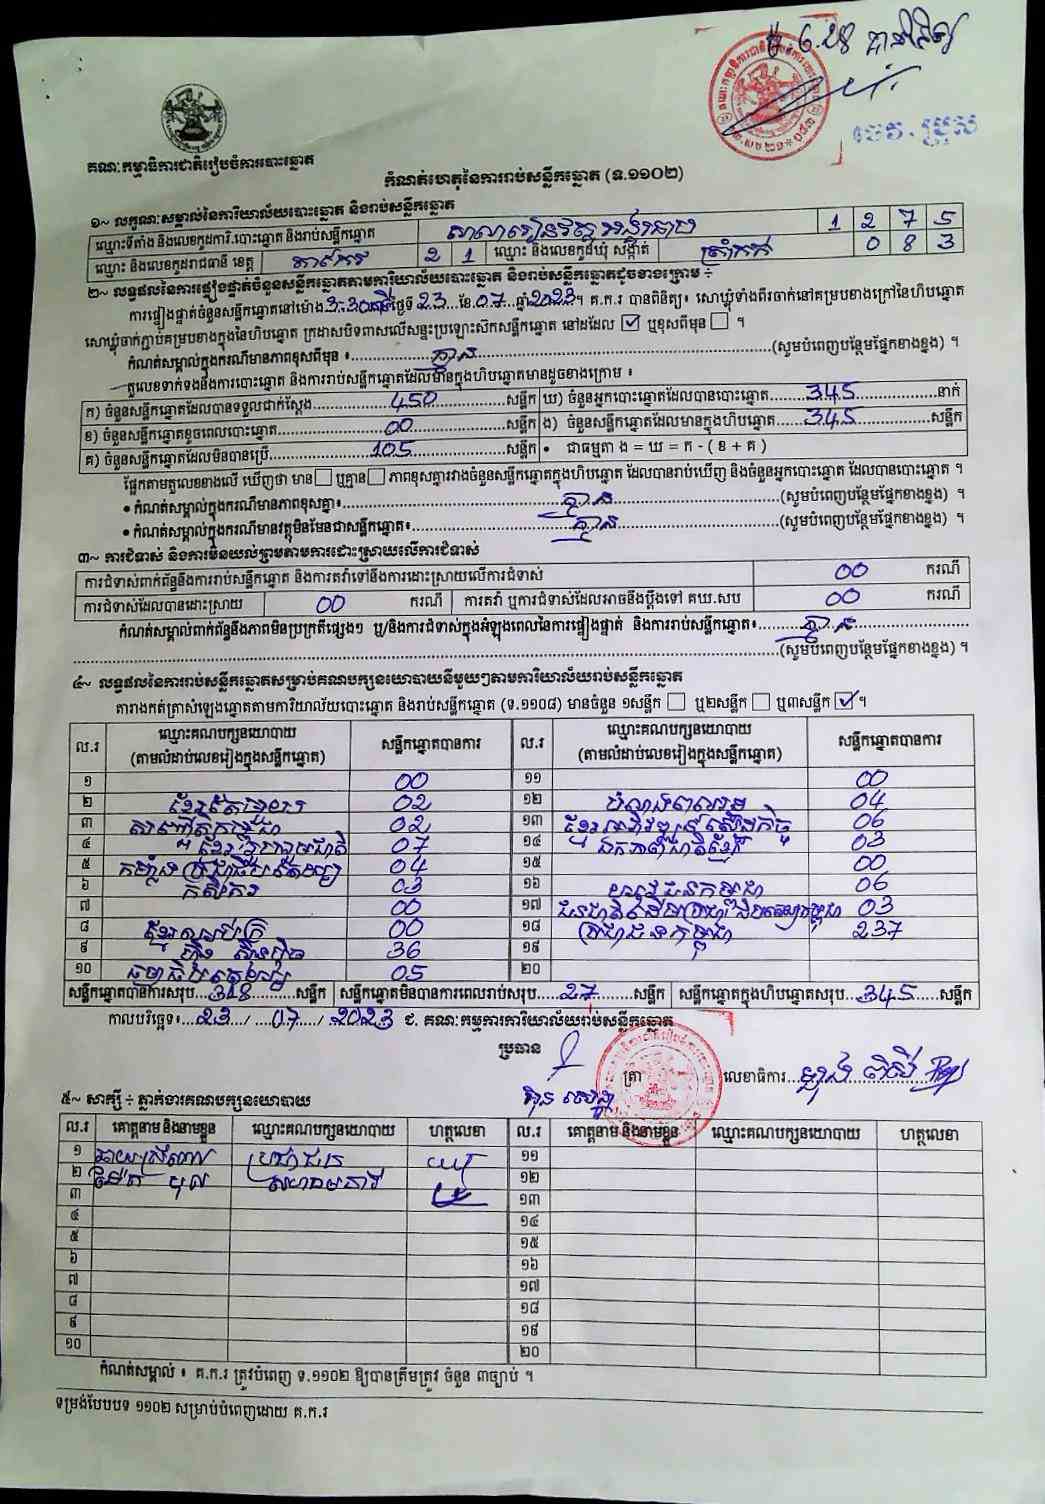 គណៈកម្មាធិការជាតិរៀបចំការបោះឆ្នោត
កំណត់ហេតុនៃការរាប់សន្លឹកឆ្នោត (ទ.១១០២)
១~ លក្ខណៈសម្គាល់នៃការិយាល័យបោះឆ្នោត និងរាប់សន្លឹកឆ្នោត
ឈ្មោះទីតាំង និងលេខកូដការិ.បោះឆ្នោត និងរាប់សន្លឹកឆ្នោត 1 2 7 5
ឈ្មោះ និងលេខកូដរាជធានី ខេត្ត តាកែវ 2 1 ឈ្មោះ និងលេខកូដឃុំ សង្កាត់ ត្រាំកក់ 0 8 3
២~ លទ្ធផលនៃការផ្ទៀងផ្ទាត់ចំនួនសន្លឹកឆ្នោតតាមការិយាល័យបោះឆ្នោត និងរាប់សន្លឹកឆ្នោតដូចខាងក្រោម ÷
ការផ្ទៀងផ្ទាត់ចំនួនសន្លឹកឆ្នោតនៅម៉ោង 3:30 ថ្ងៃទី 23 ខែ 07 ឆ្នាំ 2023 ។ គ.ក.រ បានពិនិត្យ៖ សោឃ្លុំទាំងពីរចាក់នៅគម្របខាងក្រៅនៃហិបឆ្នោត
សោឃ្លុំចាក់ភ្ជាប់គម្របខាងក្នុងនៃហិបឆ្នោត ក្រដាសបិទពាសលើសន្ទះប្រឡោះស៊កសន្លឹកឆ្នោត នៅដដែល ☑ ឬខុសពីមុន ☐ ។
កំណត់សម្គាល់ក្នុងករណីមានភាពខុសពីមុន ៖ គ្មាន (សូមបំពេញបន្ថែមផ្នែកខាងខ្នង) ។
តួលេខទាក់ទងនឹងការបោះឆ្នោត និងការរាប់សន្លឹកឆ្នោតដែលមានក្នុងហិបឆ្នោតមានដូចខាងក្រោម ៖
ក) ចំនួនសន្លឹកឆ្នោតដែលបានទទួលជាក់ស្ដែង 450 សន្លឹក ឃ) ចំនួនអ្នកបោះឆ្នោតដែលបានបោះឆ្នោត 345 នាក់
ខ) ចំនួនសន្លឹកឆ្នោតខូចពេលបោះឆ្នោត 00 សន្លឹក ង) ចំនួនសន្លឹកឆ្នោតដែលមានក្នុងហិបឆ្នោត 345 សន្លឹក
គ) ចំនួនសន្លឹកឆ្នោតដែលមិនបានប្រើ 105 សន្លឹក • ជាធម្មតា ង = ឃ = ក - ( ខ + គ )
ផ្អែកតាមតួលេខខាងលើ ឃើញថា មាន ☐ ឬគ្មាន ☐ ភាពខុសគ្នារវាងចំនួនសន្លឹកឆ្នោតក្នុងហិបឆ្នោត ដែលបានរាប់ឃើញ និងចំនួនអ្នកបោះឆ្នោត ដែលបានបោះឆ្នោត ។
• កំណត់សម្គាល់ក្នុងករណីមានភាពខុសគ្នា៖ គ្មាន (សូមបំពេញបន្ថែមផ្នែកខាងខ្នង) ។
• កំណត់សម្គាល់ក្នុងករណីមានវត្ថុមិនមែនជាសន្លឹកឆ្នោត៖ គ្មាន (សូមបំពេញបន្ថែមផ្នែកខាងខ្នង) ។
៣~ ការជំទាស់ និងការមិនយល់ព្រមតាមការដោះស្រាយលើការជំទាស់
ការជំទាស់ពាក់ព័ន្ធនឹងការរាប់សន្លឹកឆ្នោត និងការតវ៉ាទៅនឹងការដោះស្រាយលើការជំទាស់ 00 ករណី
ការជំទាស់ដែលបានដោះស្រាយ 00 ករណី ការតវ៉ា ឬការជំទាស់ដែលអាចនឹងប្ដឹងទៅ គឃ.សប 00 ករណី
កំណត់សម្គាល់ពាក់ព័ន្ធនឹងភាពមិនប្រក្រតីផ្សេងៗ ឬ/និងការជំទាស់ក្នុងអំឡុងពេលនៃការផ្ទៀងផ្ទាត់ និងការរាប់សន្លឹកឆ្នោត៖ គ្មាន
(សូមបំពេញបន្ថែមផ្នែកខាងខ្នង) ។
៤~ លទ្ធផលនៃការរាប់សន្លឹកឆ្នោតសម្រាប់គណបក្សនយោបាយនីមួយៗតាមការិយាល័យរាប់សន្លឹកឆ្នោត
តារាងកត់ត្រាសំឡេងឆ្នោតតាមការិយាល័យបោះឆ្នោត និងរាប់សន្លឹកឆ្នោត (ទ.១១០៨) មានចំនួន ១សន្លឹក ☐ ឬ២សន្លឹក ☐ ឬ៣សន្លឹក ☑ ។
ល.រ ឈ្មោះគណបក្សនយោបាយ (តាមលំដាប់លេខរៀងក្នុងសន្លឹកឆ្នោត) សន្លឹកឆ្នោតបានការ ល.រ ឈ្មោះគណបក្សនយោបាយ (តាមលំដាប់លេខរៀងក្នុងសន្លឹកឆ្នោត) សន្លឹកឆ្នោតបានការ
១ 00 ១១ 00
២ ខ្មែរតែមួយ 02 ១២ 04
៣ 02 ១៣ ខ្មែរអភិវឌ្ឍន៍សេដ្ឋកិច្ច 06
៤ ខ្មែររួបរួមជាតិ 07 ១៤ ឯកភាពជាតិខ្មែរ 03
៥ កម្លាំងប្រជាធិបតេយ្យ 04 ១៥ 00
៦ កសិករ 03 ១៦ យុវជនកម្ពុជា 06
៧ 00 ១៧ ជនជាតិដើមប្រជាធិបតេយ្យកម្ពុជា 03
៨ ខ្មែរ 00 ១៨ ប្រជាជនកម្ពុជា 237
៩ 36 ១៩
១០ ធម្មាធិបតេយ្យ 05 ២០
សន្លឹកឆ្នោតបានការសរុប 318 សន្លឹក សន្លឹកឆ្នោតមិនបានការពេលរាប់សរុប 27 សន្លឹក សន្លឹកឆ្នោតក្នុងហិបឆ្នោតសរុប 345 សន្លឹក
កាលបរិច្ឆេទ៖ 23 / 07 / 2023 ជ. គណៈកម្មការការិយាល័យរាប់សន្លឹកឆ្នោត
ប្រធាន
ត្រា លេខាធិការ
៥~ សាក្សី ÷ ភ្នាក់ងារគណបក្សនយោបាយ
ល.រ គោត្តនាម និងនាមខ្លួន ឈ្មោះគណបក្សនយោបាយ ហត្ថលេខា ល.រ គោត្តនាម និងនាមខ្លួន ឈ្មោះគណបក្សនយោបាយ ហត្ថលេខា
១ ប្រជាជន ១១
២ ១២
៣ ១៣
៤ ១៤
៥ ១៥
៦ ១៦
៧ ១៧
៨ ១៨
៩ ១៩
១០ ២០
កំណត់សម្គាល់ ៖ គ.ក.រ ត្រូវបំពេញ ទ.១១០២ ឱ្យបានត្រឹមត្រូវ ចំនួន ៣ច្បាប់ ។
ទម្រង់បែបបទ ១១០២ សម្រាប់បំពេញដោយ គ.ក.រ